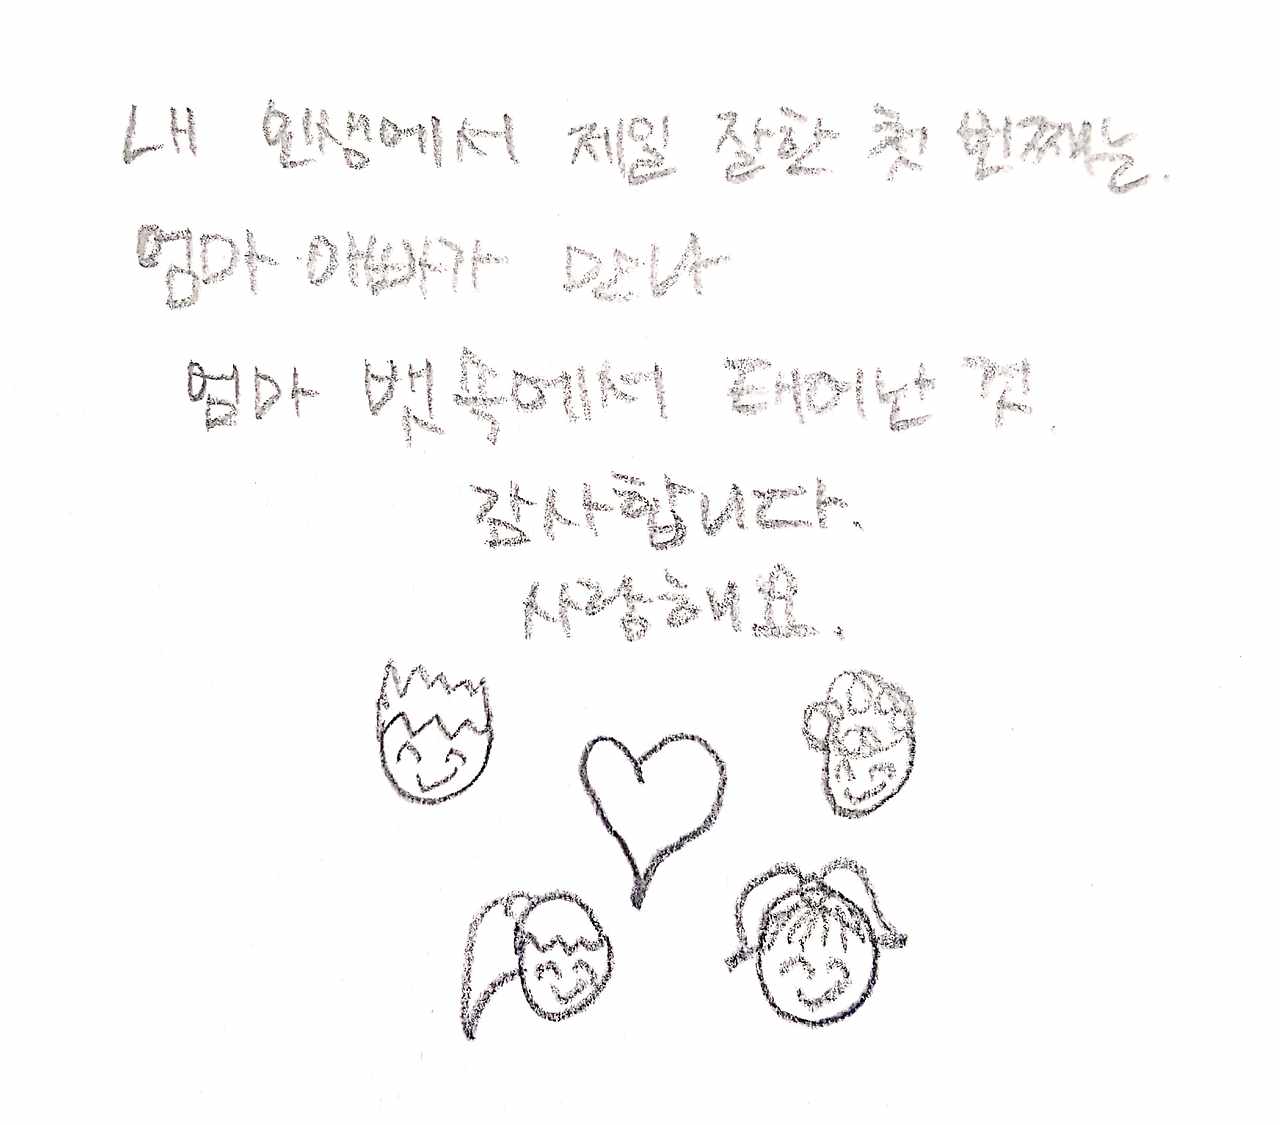 내 인생에서 제일 잘한 첫 번째는.
엄마 아빠가 만나
엄마 뱃속에서 태어난 것.
감사합니다.
사랑해요.